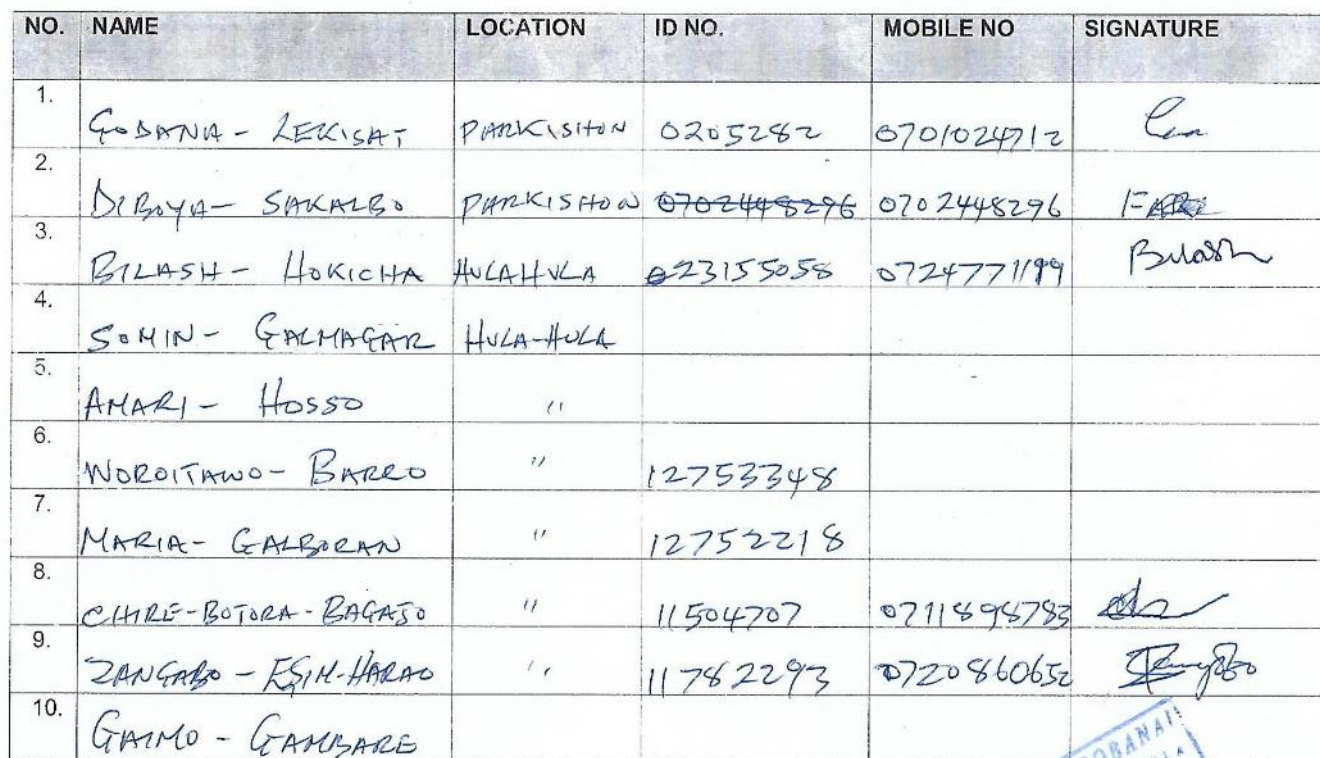 NO. NAME LOCATION ID NO. MOBILE NO SIGNATURE
1. GOBANA - LEKISAT PARKISHON 0205282 0701024712
2. DIBOYA - SAKALBO PARKISHON 0702448296 0702448296
3. BILASH - HOKICHA HULAHULA 023155058 0724771199 Bilash
4. SOMIN - GALMAGAR HULA-HULA
5. AMARI - HOSSO "
6. WOROITAWO - BARRO " 127533348
7. MARIA - GALBORAN " 12752218
8. CHIRE-BOTORA-BAGAJO " 11504707 0711898783
9. ZANGABO - ESIM-HARAO " 11782293 0720860652
10. GAIMO - GAMBARE
OBANAI